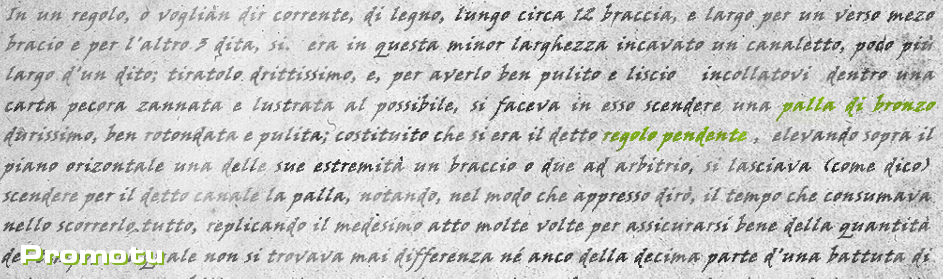 In un regolo, o vogliàn dir corrente, di legno, lungo circa 12 braccia, e largo per un verso mezo
bracio e per l'altro 3 dita, si era in questa minor larghezza incavato un canaletto, poco più
largo d'un dito; tiratolo drittissimo, e, per averlo ben pulito e liscio incollatovi dentro una
carta pecora zannata e lustrata al possibile, si faceva in esso scendere una palla di bronzo
durissimo, ben rotondata e pulita; costituito che si era il detto regolo pendente, elevando sopra il
piano orizontale una delle sue estremità un braccio o due ad arbitrio, si lasciava (come dico)
scendere per il detto canale la palla, notando, nel modo che appresso dirò, il tempo che consumava
nello scorrerlo tutto, replicando il medesimo atto molte volte per assicurarsi bene della quantità
non si trovava mai differenza né anco della decima parte d'una battuta di
Promotu